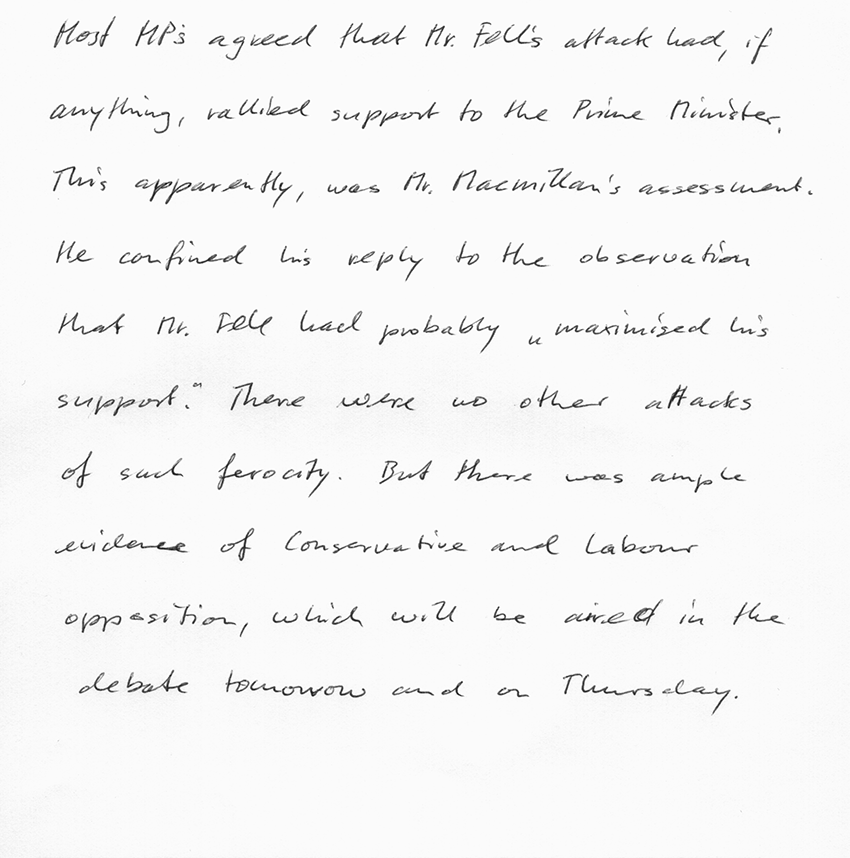 Most MP's agreed that Mr. Fell's attack had, if
anything, rallied support to the Prime Minister.
This apparently, was Mr. Macmillan's assessment.
He confined his reply to the observation
that Mr. Fell had probably „maximised his
support.“ There were no other attacks
of such ferocity. But there was ample
evidence of Conservative and Labour
opposition, which will be aired in the
debate tomorrow and on Thursday.